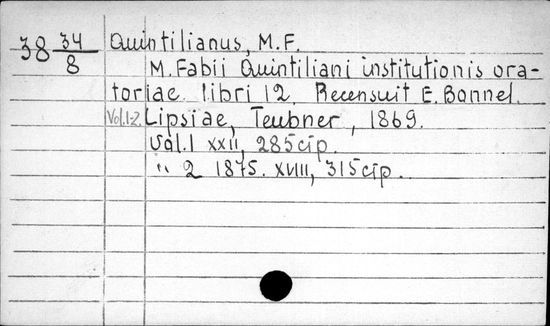 38 34/8 Quintilianus, M.F.
M. Fabii Quintiliani institutionis ora-
toriae libri 12. Recensuit E. Bonnel.
Vol. 1-2. Lipsiae, Teubner, 1869.
Vol. 1 XXII, 285 стр.
" 2 1875. XVIII, 315 стр.